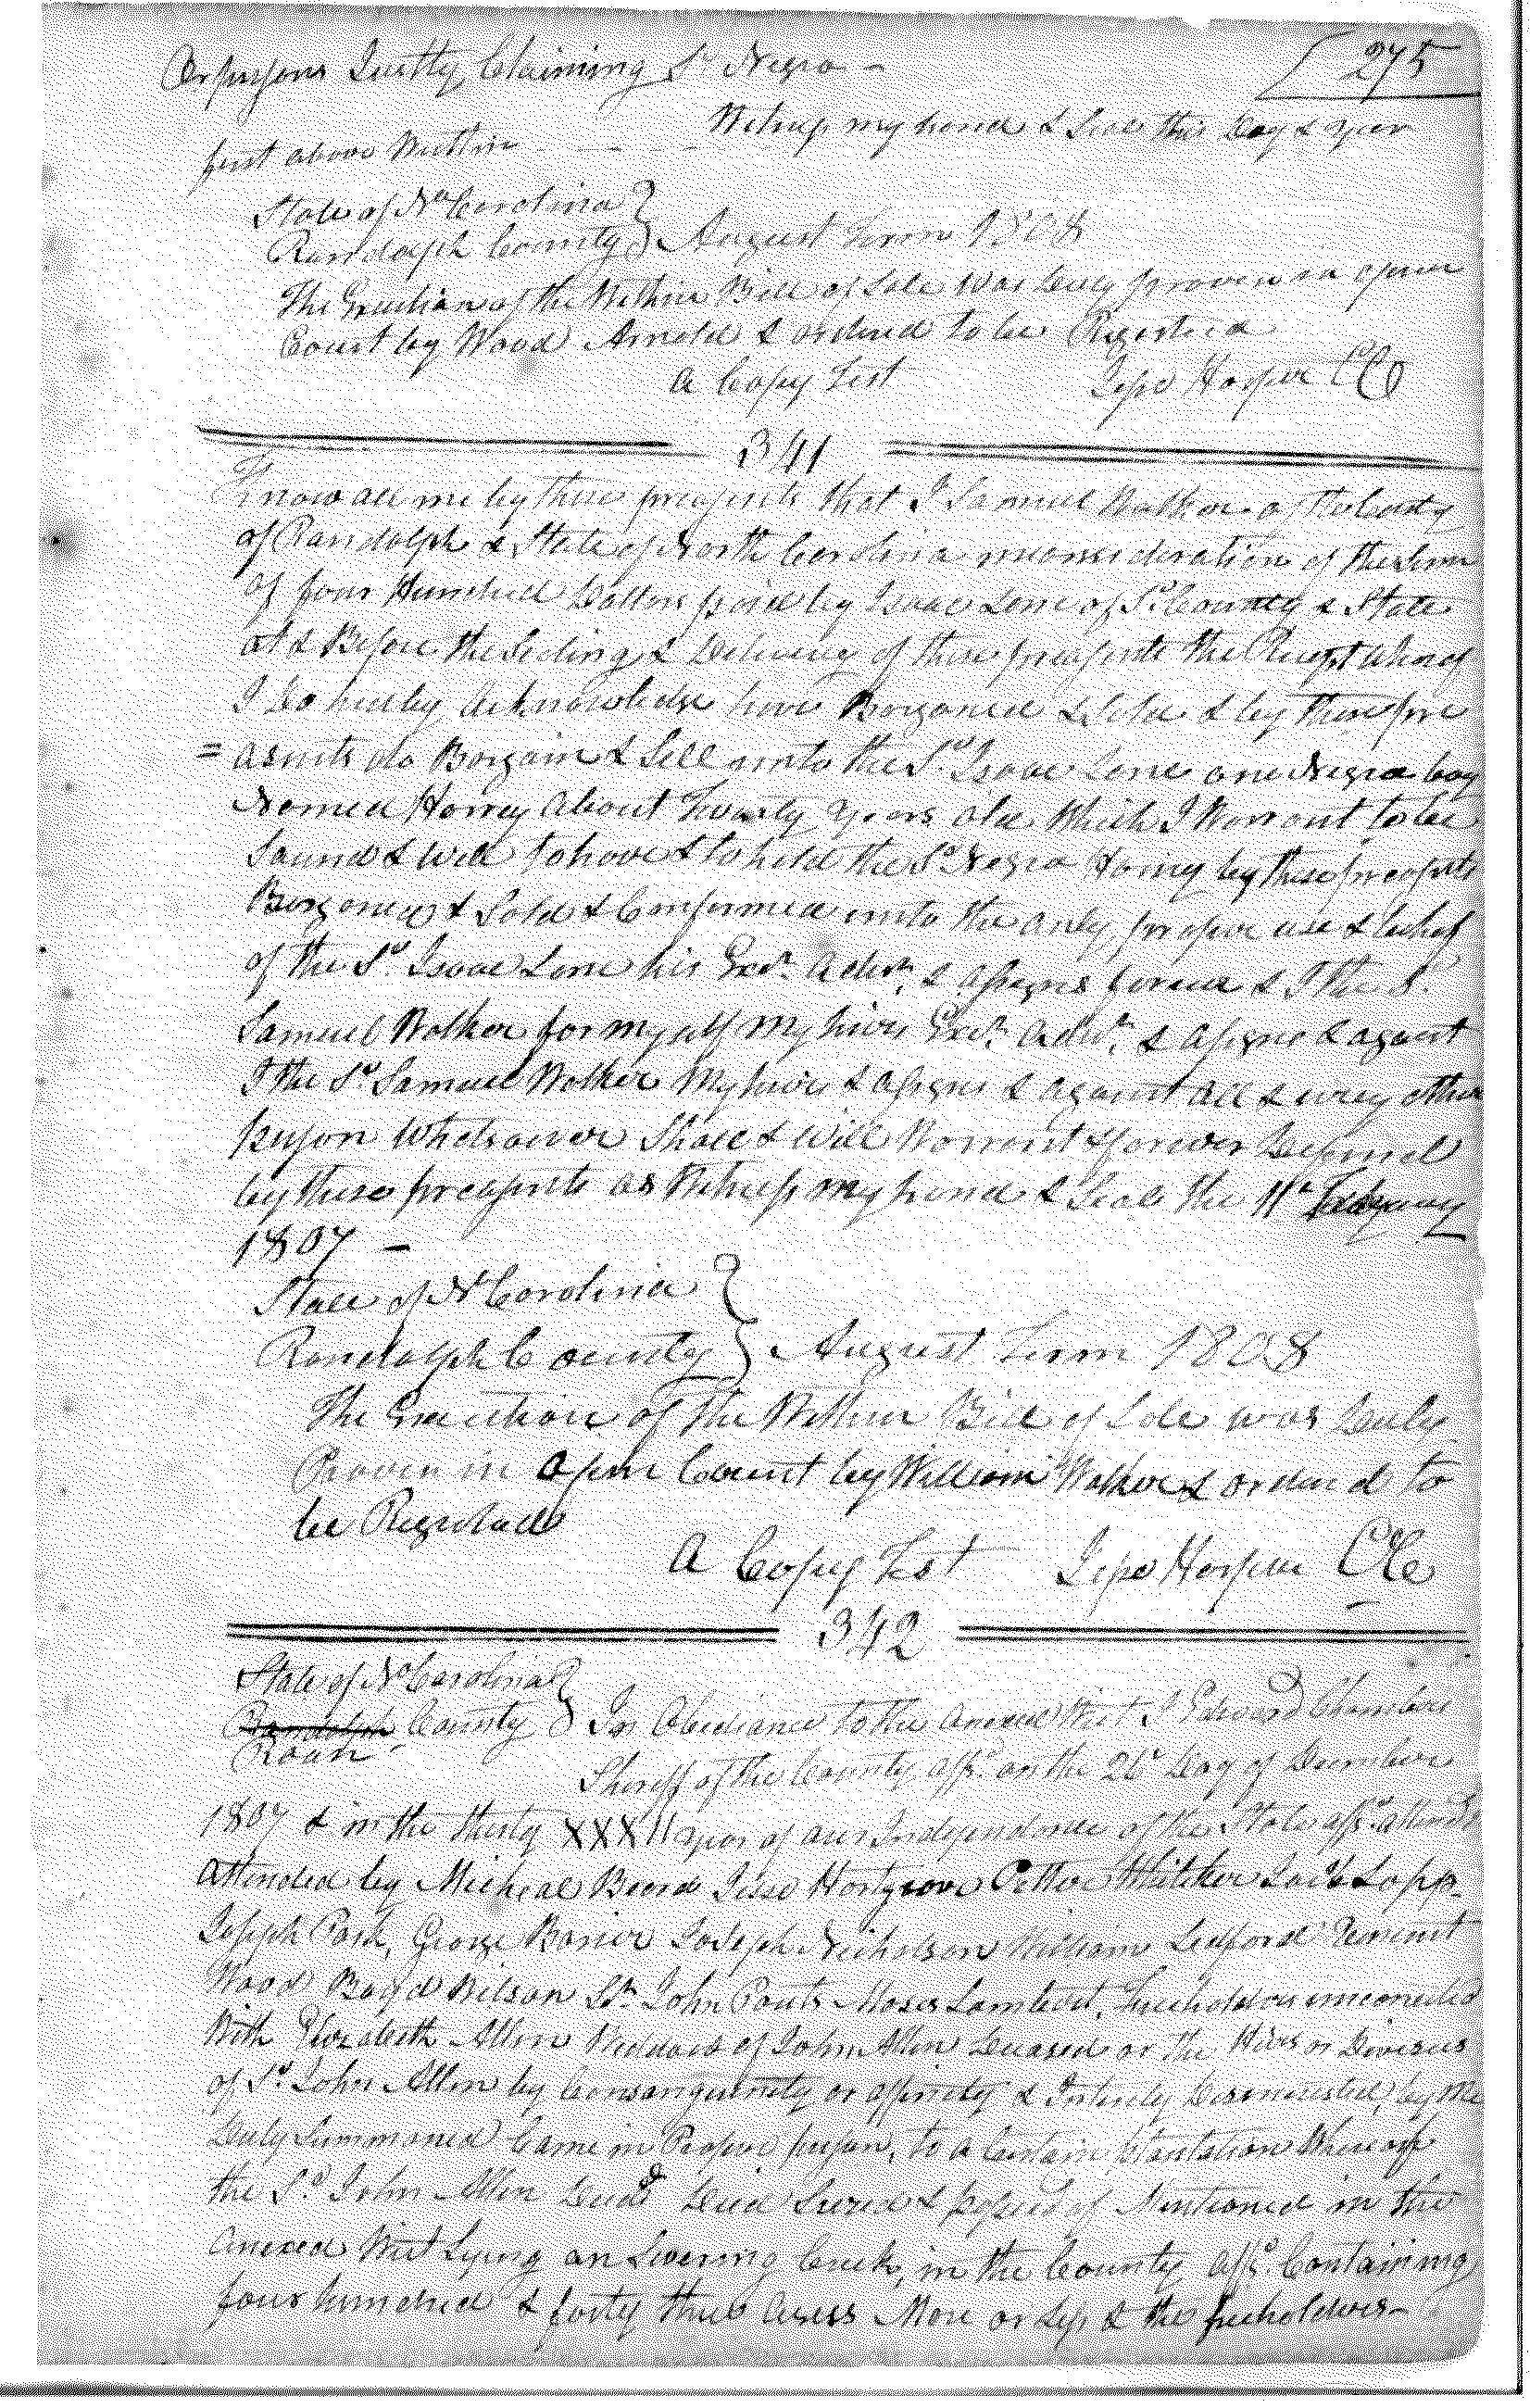 Or persons Lawfully Claiming Sd Negro –
275
Witness my hand & Seal this Day & year
first above Written
State of No Carolina
Randolph County August Term 1808
The Execution of the Within Bill of Sale was Duly proven in open
Court by Wood Arnold & ordered to be Registered
A Copy Test Jesse Harper CC
341
Know all me by these presents that I Samuel Walker of the County
of Randolph & State of North Carolina in consideration of the sum
of four Hundred Dollars paid by Isaac Lane of Sd County & State
at & Before the Sealing & Delivery of these presents the Receipt whereof
I Do hereby Acknowledge have Bargained & Sold & by these pre
= asents do Bargain & Sell unto the Sd Isaac Lane one Negro boy
Named Harvey About Twenty years old Which I Warrant to be
Sound & well to have & to hold the Sd Negro Harvey by these presents
Bargoned & Sold & Conformed unto the only proper use & behof
of the Sd Isaac Lane his Exrs Admrs & Assigns forever & I the Sd
Samuel Walker for myself my heirs Exrs Admrs & Assigns & against
I the Sd Samuel Walker My heirs & Assigns & against all & every other
person Whatsoever Shall & Will Warrant & forever Defend
by these presents as Witness my hand & Seal the 11th
1807 –
State of No Carolina
Randolph County August Term 1808
The Execution of the Within Bill of Sale was Duly
Proven in open Court by William Walker & ordered to
be Registered
A Copy Test Jesse Harper CC
342
State of No Carolina
Randolph County In Obediance to the anexed Writ I Edward Chambers
Roan
Sheriff of the County affsd on the 26th Day of December
1807 & in the thirty XXXII year of our Independence of the State affsd
attended by Micheal Beard Jesse Hargrove Petter Whitaker Jacob Lopp
Joseph Park, George Barier Joseph Nicholson William Ledford Vincent
Wood Boyd Wilson Sr John Pouts Moses Lambert, Freeholders unconected
With Elizabeth Allen Widdow of John Allen Deceased or the Heirs or Devisees
of Sd John Allen by Consanguinity or affinity & Intirely Disinterested, by me
Duly Summoned Came in Proper person, to a Certain plantation Whereof
the Sd John Allen Decd Died Seized & possesd of Mentioned in the
anexed Writ Lying on Swering Creek, in the County affsd Containing
four hundred & forty three Acress More or Less & the freeholders –